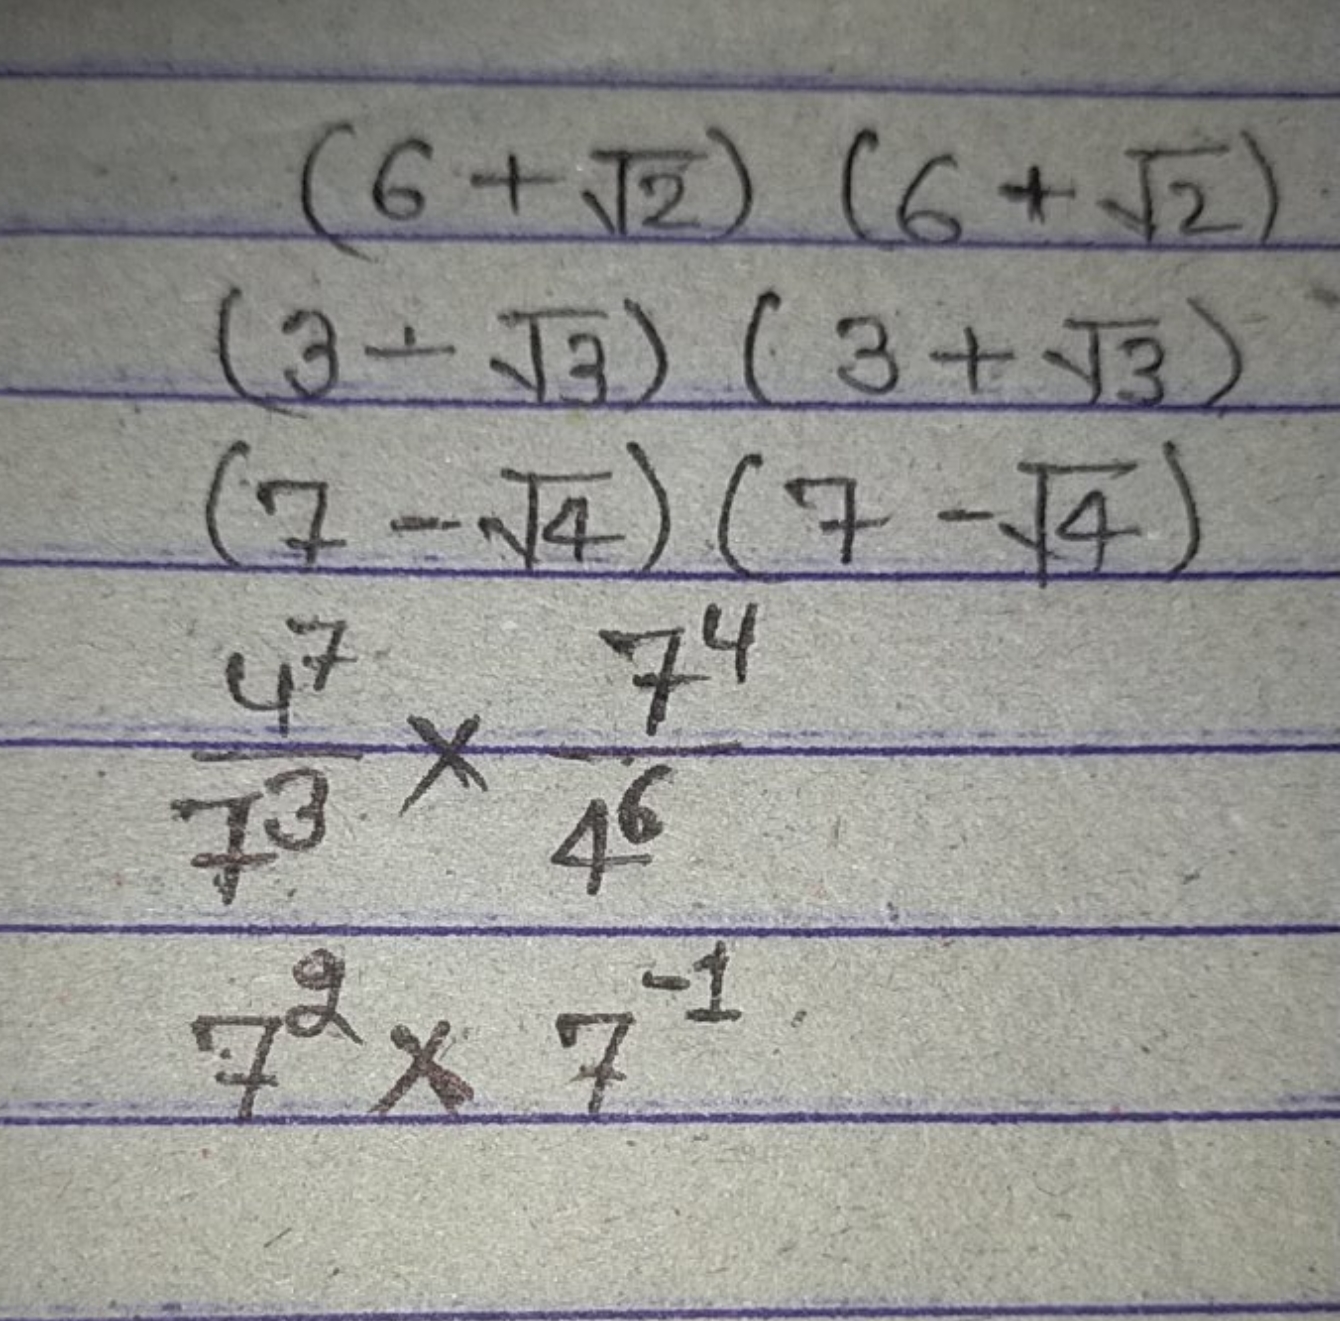 (6 + √2) (6 + √2)
(3 + √3) (3 + √3)
(7 - √4) (7 - √4)
4⁷/7³ × 7⁴/4⁶
7² × 7⁻¹